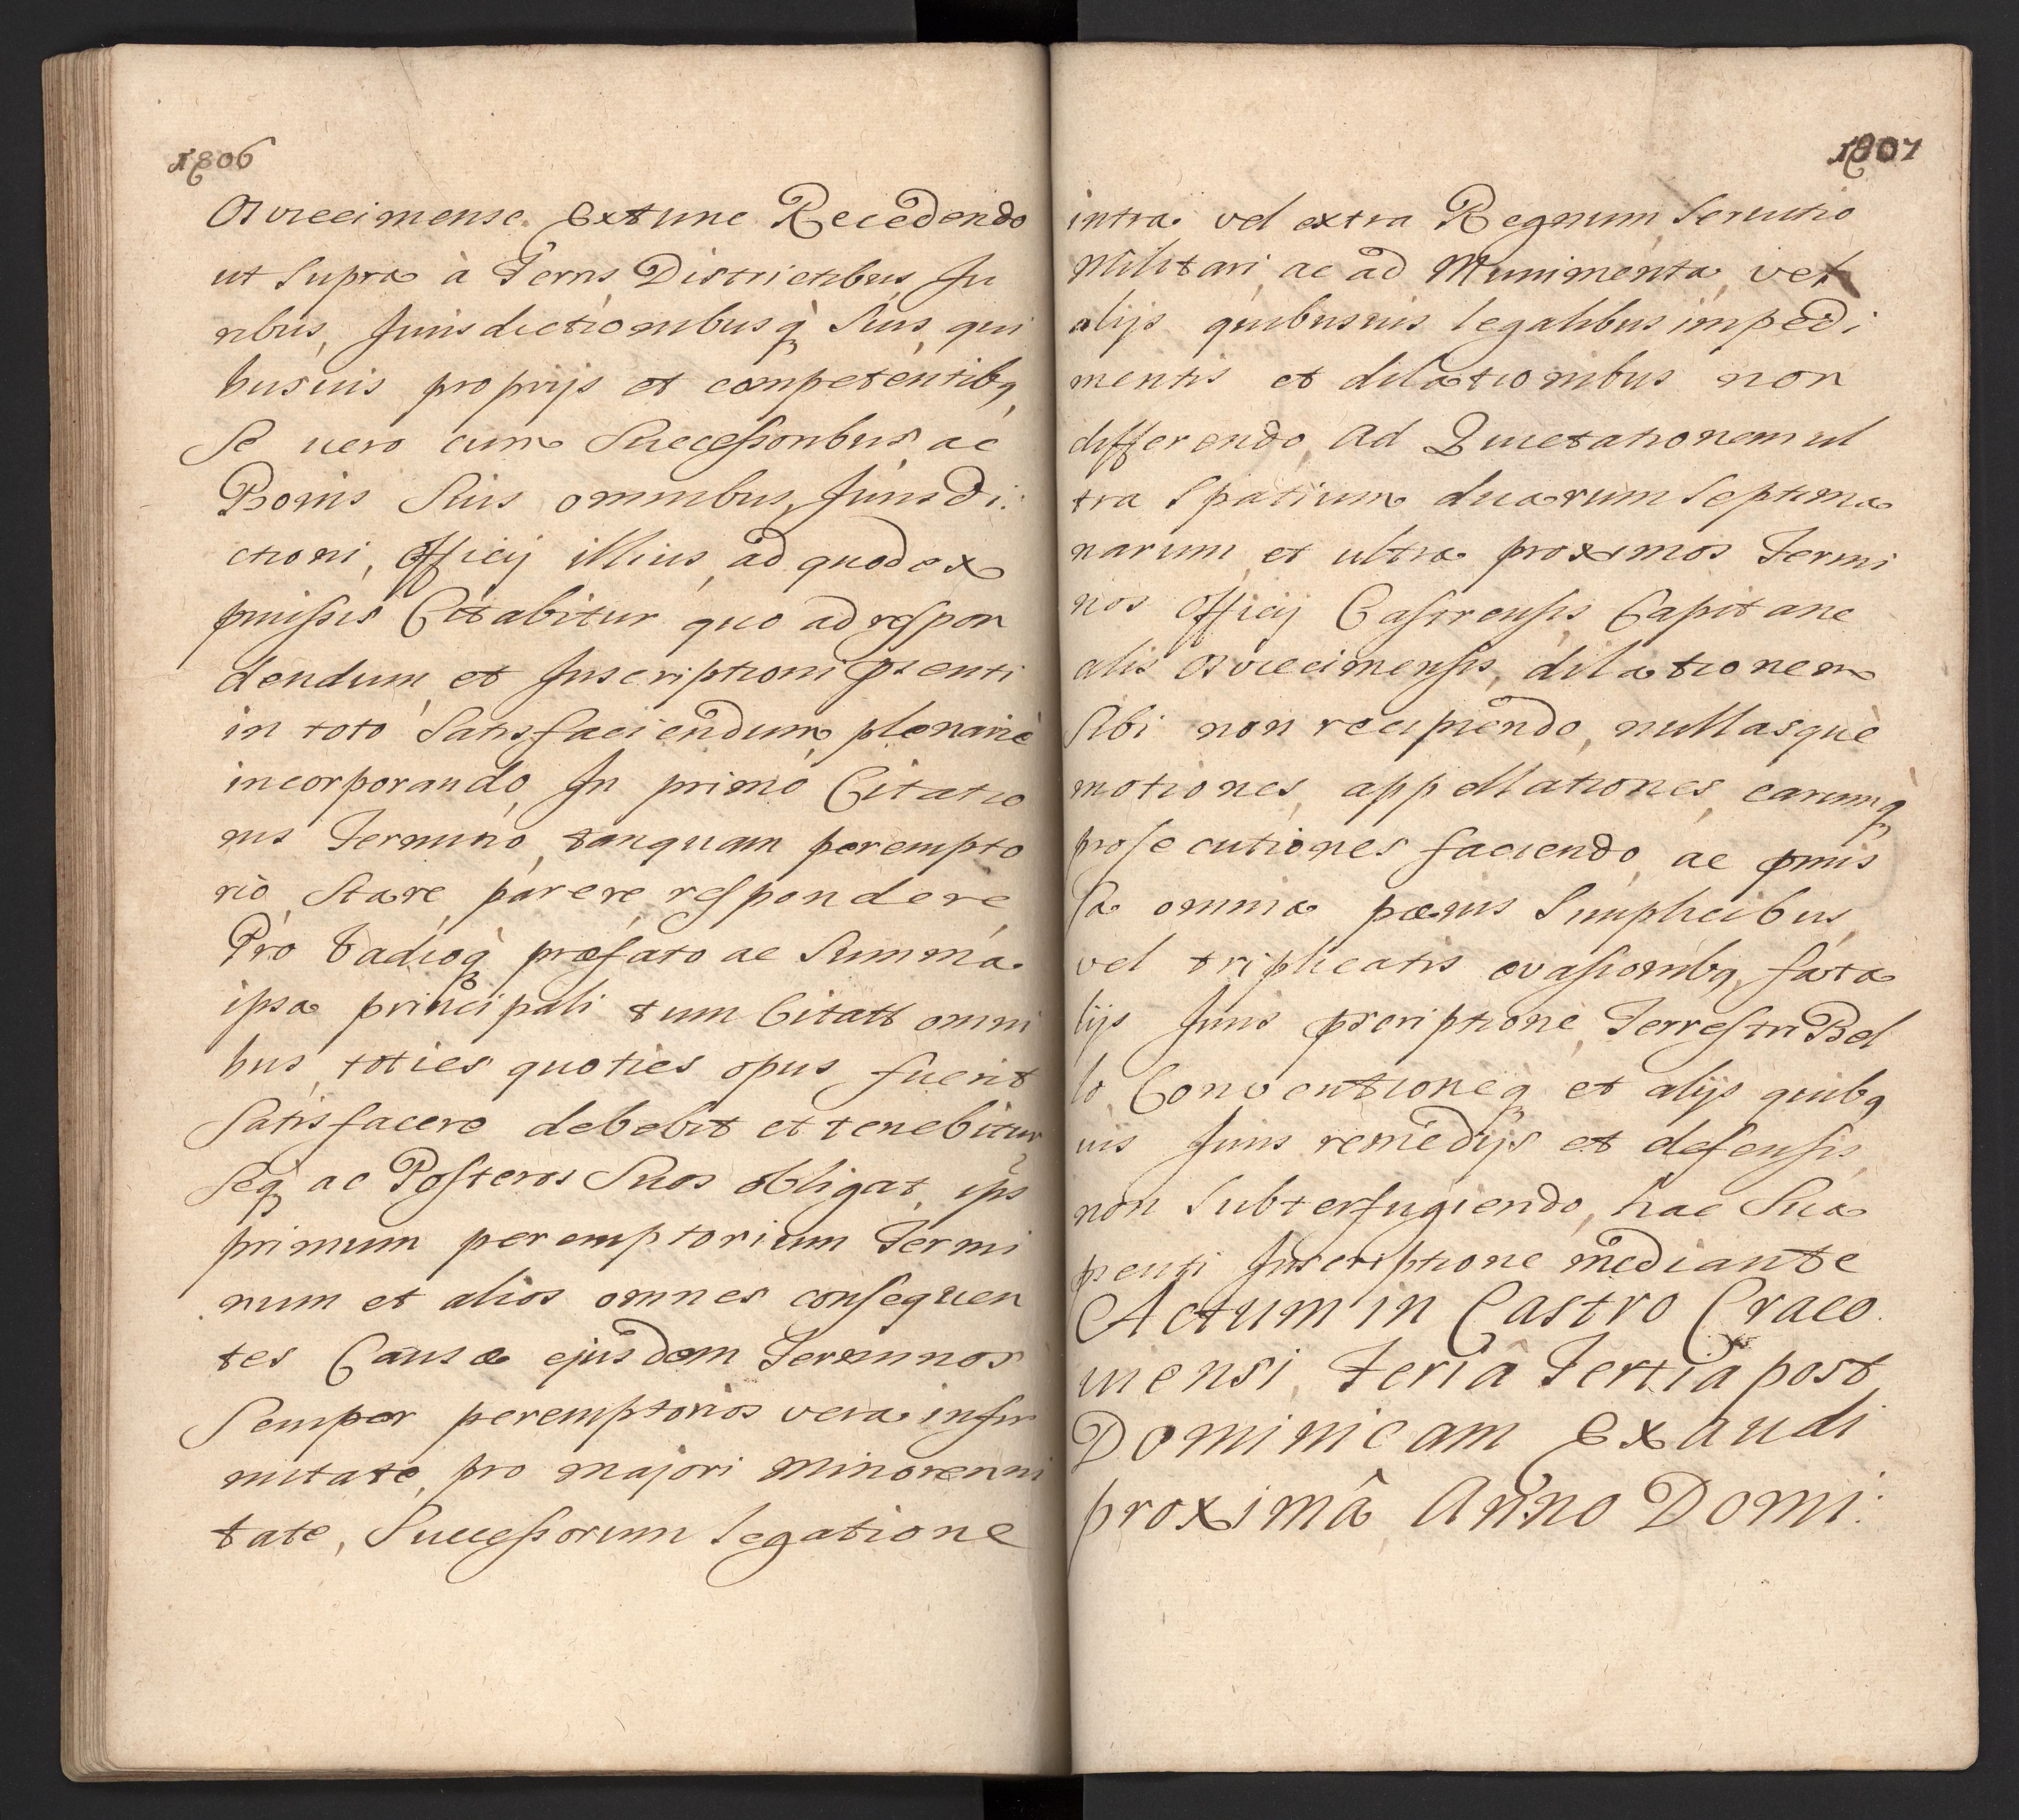 1806
Osviecimense Extunc Recedendo
ut Supra à Terris Districtibus Ju
ribus, Jurisdictionibusq̀ Suis, qui
busuis proprijs et competentibq,
Se uero cum Successoribus ac
Bonis Suis omnibus, Jurisdi:
ctioni, Officij illius, ad quod ex
pmissis Citabitur quo ad respon
dendum et Inscriptioni pnti
in toto Satisfaciendum plenariè
incorporando, In primo Citatio
nis Termino, tanquam perempto
rio Stare parere respondere
Pro Vadioq̀ præfato ac Summa
ipsa principali tum Citatt omni
bus, toties quoties opus fuerit
Satisfacere debebit et tenebitur
Seq ac Posteros Suos obligat, ips
primum peremptorium Termi
num et alios omnes consequen
tes Causæ ejusdem Terminos
Semper peremptorios vera infir
mitate, pro majori Minorenni
tate, Successorum legatione
1807
intra vel extra Regnum, Seruitio
Militari, ac ad Munimenta, vel
alijs quibusuis legalibus impedi
mentis et dilationibus non
differendo, Ad Quietationem ul
tra Spatium duarum Septima
narum, et ultra proximos Termi
nos Officij Castrensis Capitane
alis Osviecimensis, dilationem
Sibi non recipiendo, nullasquè
motiones, appellationes, earumq̀
prosecutiones faciendo, ac pmis
sa omnia pænis Simplicibus
vel triplicatis evasionibq, fata
lijs Juris pscriptione, Terrestri Bel
lo Conventioneq̀ et alijs quibq
uis Juris remedijs et defensis
non Subterfugiendo, hac Sua
pnti Inscriptione mediante
Actum in Castro Craco
uiensi, Feriâ Tertiâ post
Dominicam Exaudi
proximâ Anno Domi: